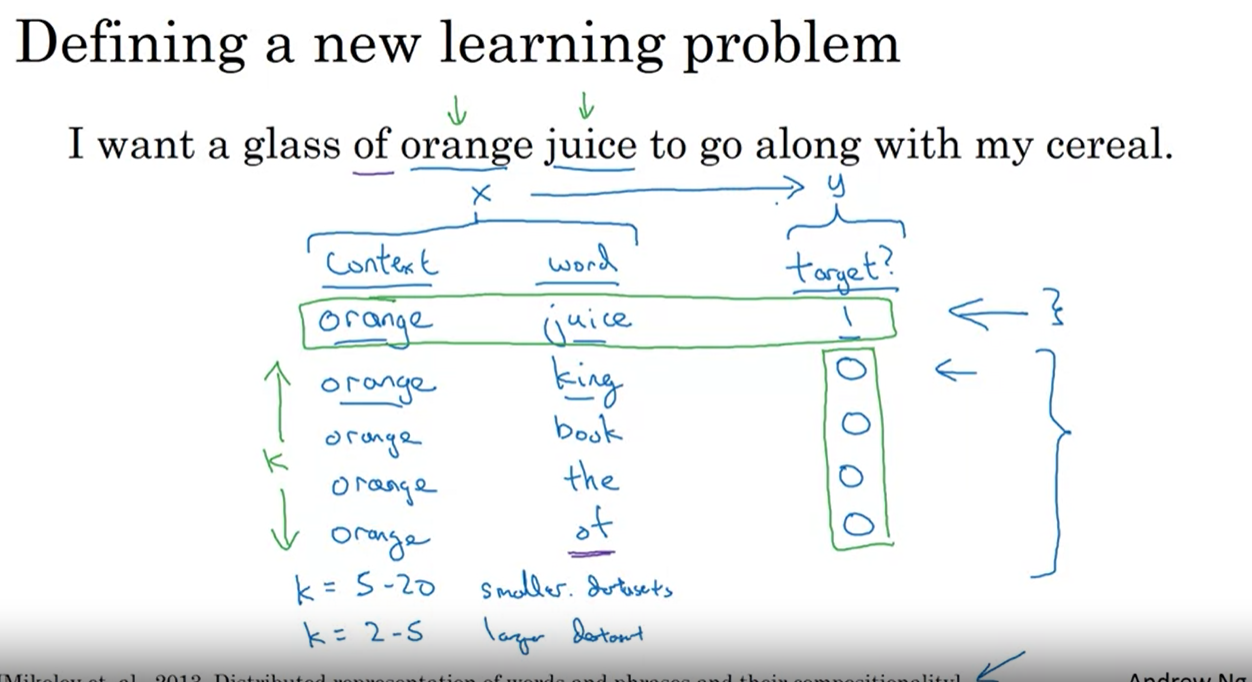 Defining a new learning problem
I want a glass of orange juice to go along with my cereal.
x y
Context word target?
orange juice 1
orange king 0
orange book 0
k
orange the 0
orange of 0
k = 5-20 smaller. datasets
k = 2-5 larger
[Mikolov et. al., 2013. Distributed representation of words and phrases and their compositionality] Andrew Ng